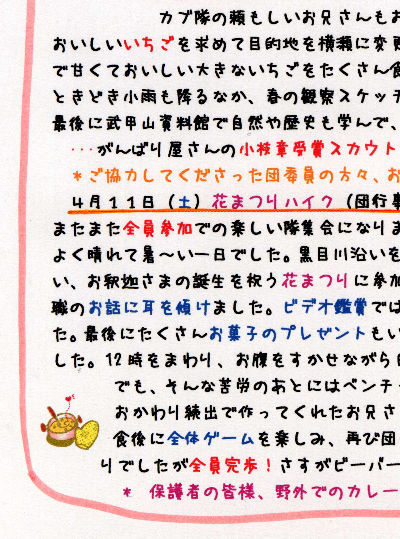 カブ隊の頼もしいお兄さんもお
おいしいいちごを求めて目的地を横瀬に変更
で甘くておいしい大きないちごをたくさん食
ときどき小雨も降るなか、春の観察スケッチ
最後に武甲山資料館で自然や歴史も学んで、
・・・がんばり屋さんの小枝章受賞スカウト
*ご協力してくださった団委員の方々、お
4月11日（土）花まつりハイク（団行事
またまた全員参加での楽しい隊集会になりま
よく晴れて暑〜い一日でした。黒目川沿いを
い、お釈迦さまの誕生を祝う花まつりに参加
職のお話に耳を傾けました。ビデオ鑑賞では
た。最後にたくさんお菓子のプレゼントもい
した。12時をまわり、お腹をすかせながら
でも、そんな苦労のあとにはベンチ
おかわり続出で作ってくれたお兄さ
食後に全体ゲームを楽しみ、再び団
りでしたが全員完歩！さすがビーバー
* 保護者の皆様、野外でのカレー